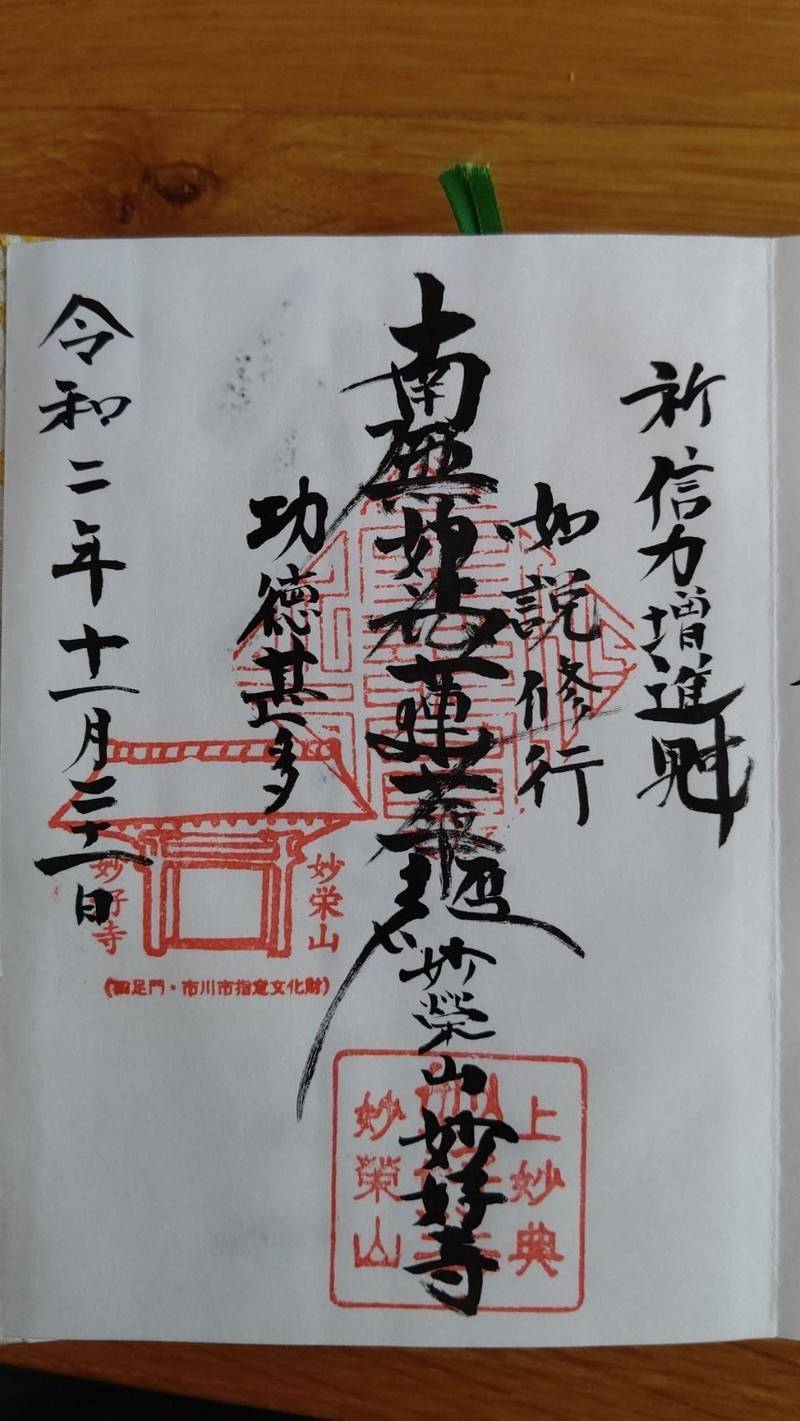 祈信力増進
如説修行
南無妙法蓮華経
功徳甚多
令和二年十一月二十一日
妙榮山妙好寺
妙栄山
妙好寺
(四足門・市川市指定文化財)
上妙典
妙榮山